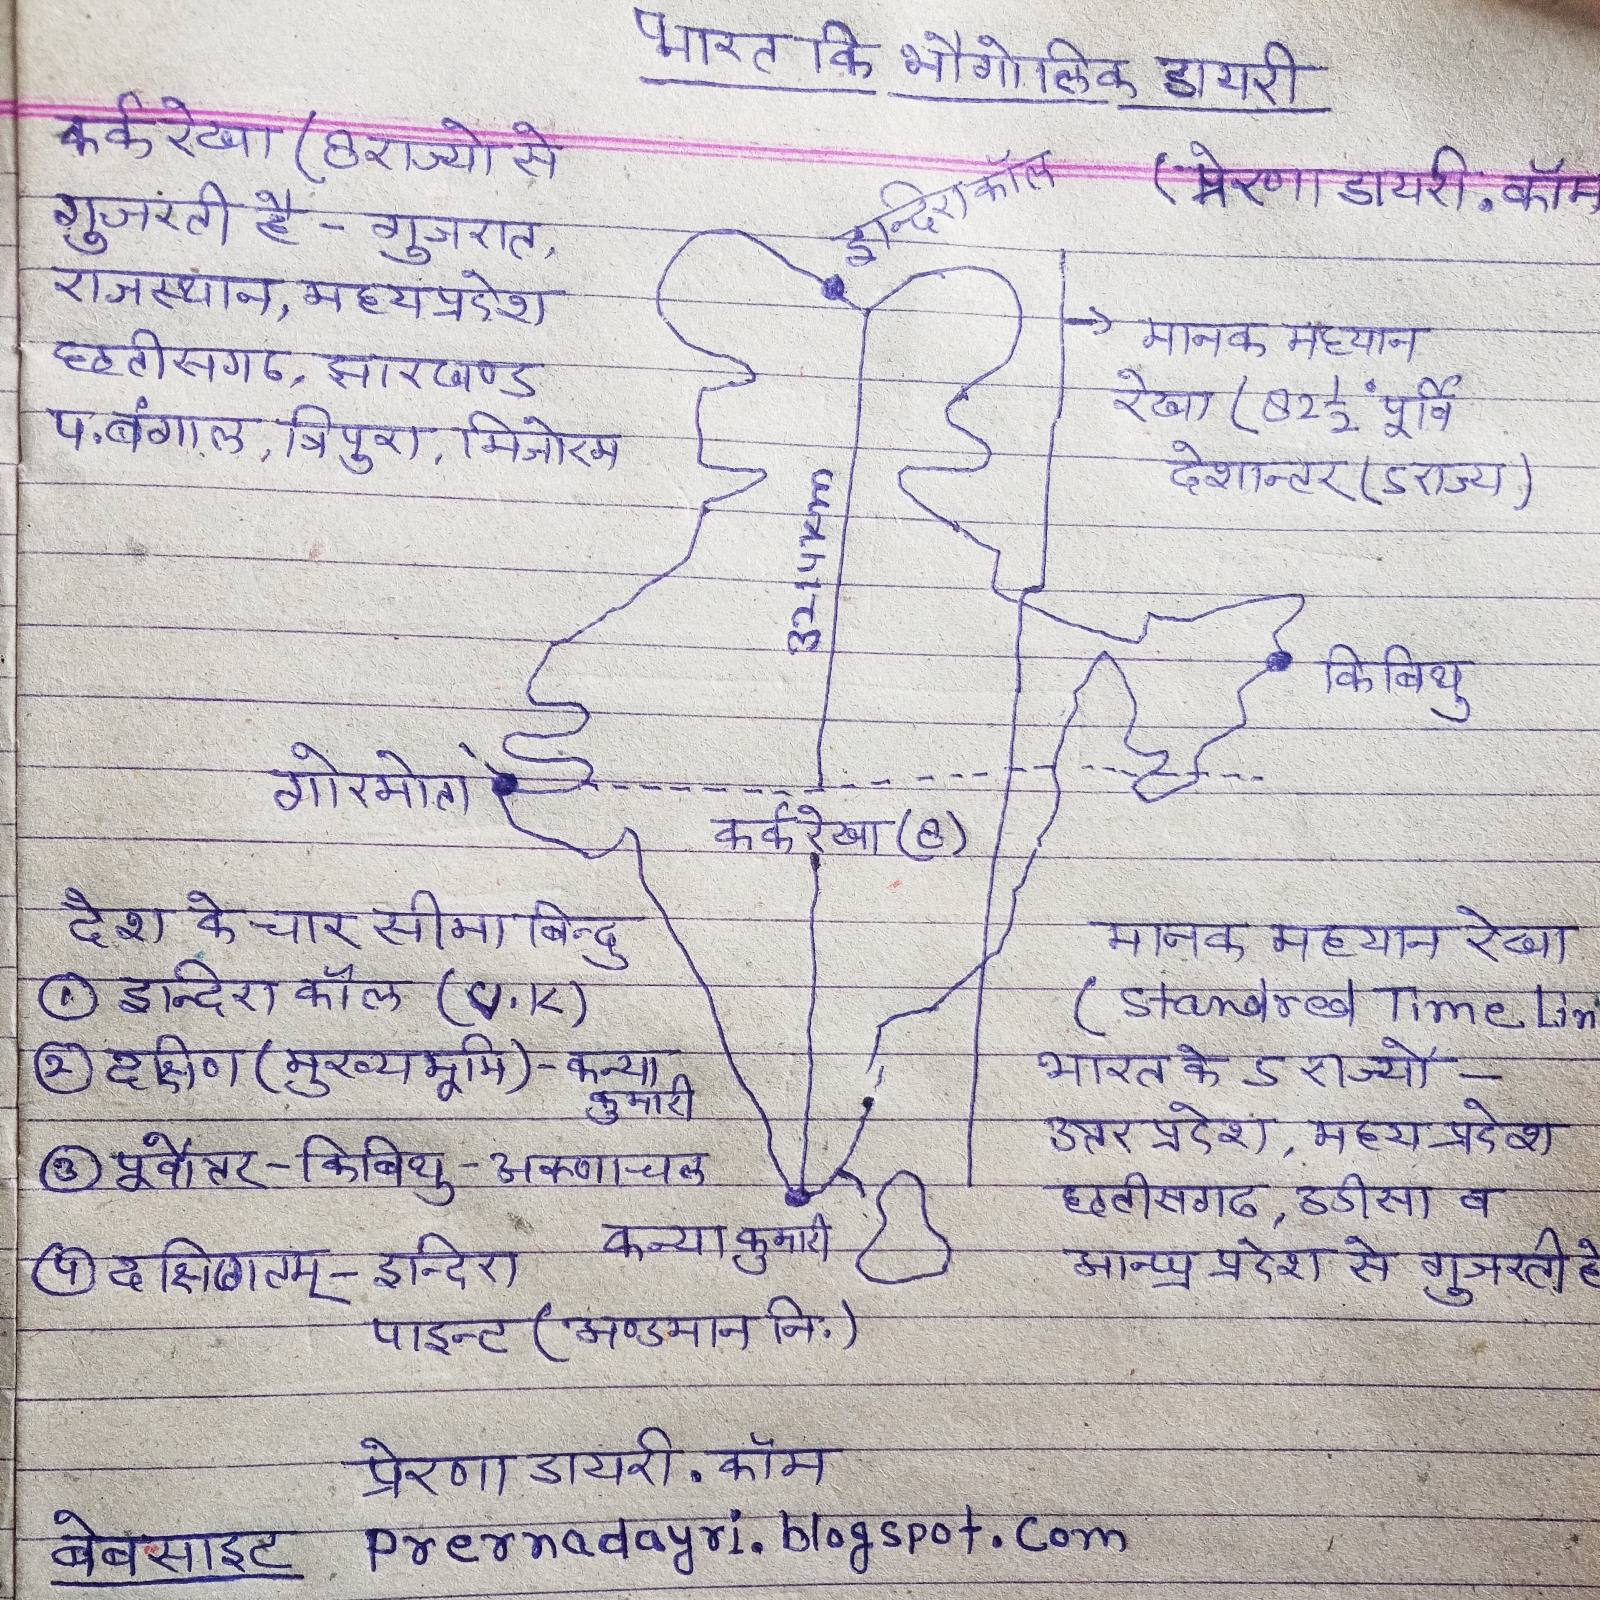 भारत कि भौगोलिक डायरी
(प्रेरणा डायरी.कॉम
कर्क रेखा (8 राज्यो से
गुजरती है - गुजरात,
राजस्थान, मध्यप्रदेश
छत्तीसगढ, झारखण्ड
प.बंगाल, त्रिपुरा, मिजोरम
इन्दिरा कॉल
मानक मध्यान
रेखा (82 1/2° पूर्वि
देशान्तर (5 राज्य)
3214km
किबिथु
गोरमोता
कर्क रेखा (8)
देश के चार सीमा बिन्दु
① इन्दिरा कॉल (J.K)
② दक्षिण (मुख्य भूमि) - कन्या
कुमारी
③ पूर्वोत्तर - किबिथु - अरुणाचल
④ दक्षिणतम् - इन्दिरा
पाइन्ट (अण्डमान नि.)
कन्याकुमारी
मानक मध्यान रेखा
(Standred Time Lin
भारत के 5 राज्यों -
उत्तर प्रदेश, मध्य प्रदेश
छत्तीसगढ, उडीसा व
आन्ध्र प्रदेश से गुजरती है
प्रेरणा डायरी.कॉम
बेबसाइट prernadayri.blogspot.com